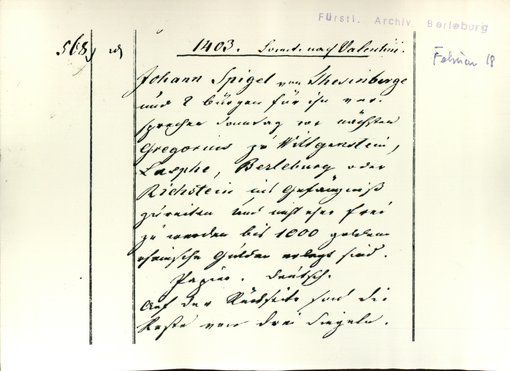 Fürstl. Archiv Berleburg
Februar 18
568,
1403. Sonnt. nach Valentini.
Johann Spigel von Thesenberge
und 2 Bürgen für ihn ver
sprechen Sonntag vor nächsten
Gregorius zu Wittgenstein,
Lasphe, Berleburg oder
Richstein ins Gefängniß
zu reiten und nicht eher frei
zu werden bis 1000 golden
rheinische Gulden erlegt sind.
Papier. Deutsch.
Auf der Rückseite sind die
Reste von drei Siegeln.